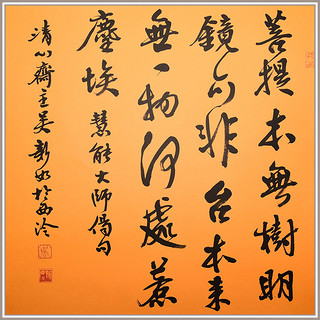 菩提本無樹明
鏡亦非台本来
無一物何處惹
塵埃 慧能大師偈句
清心齋主吳於西泠